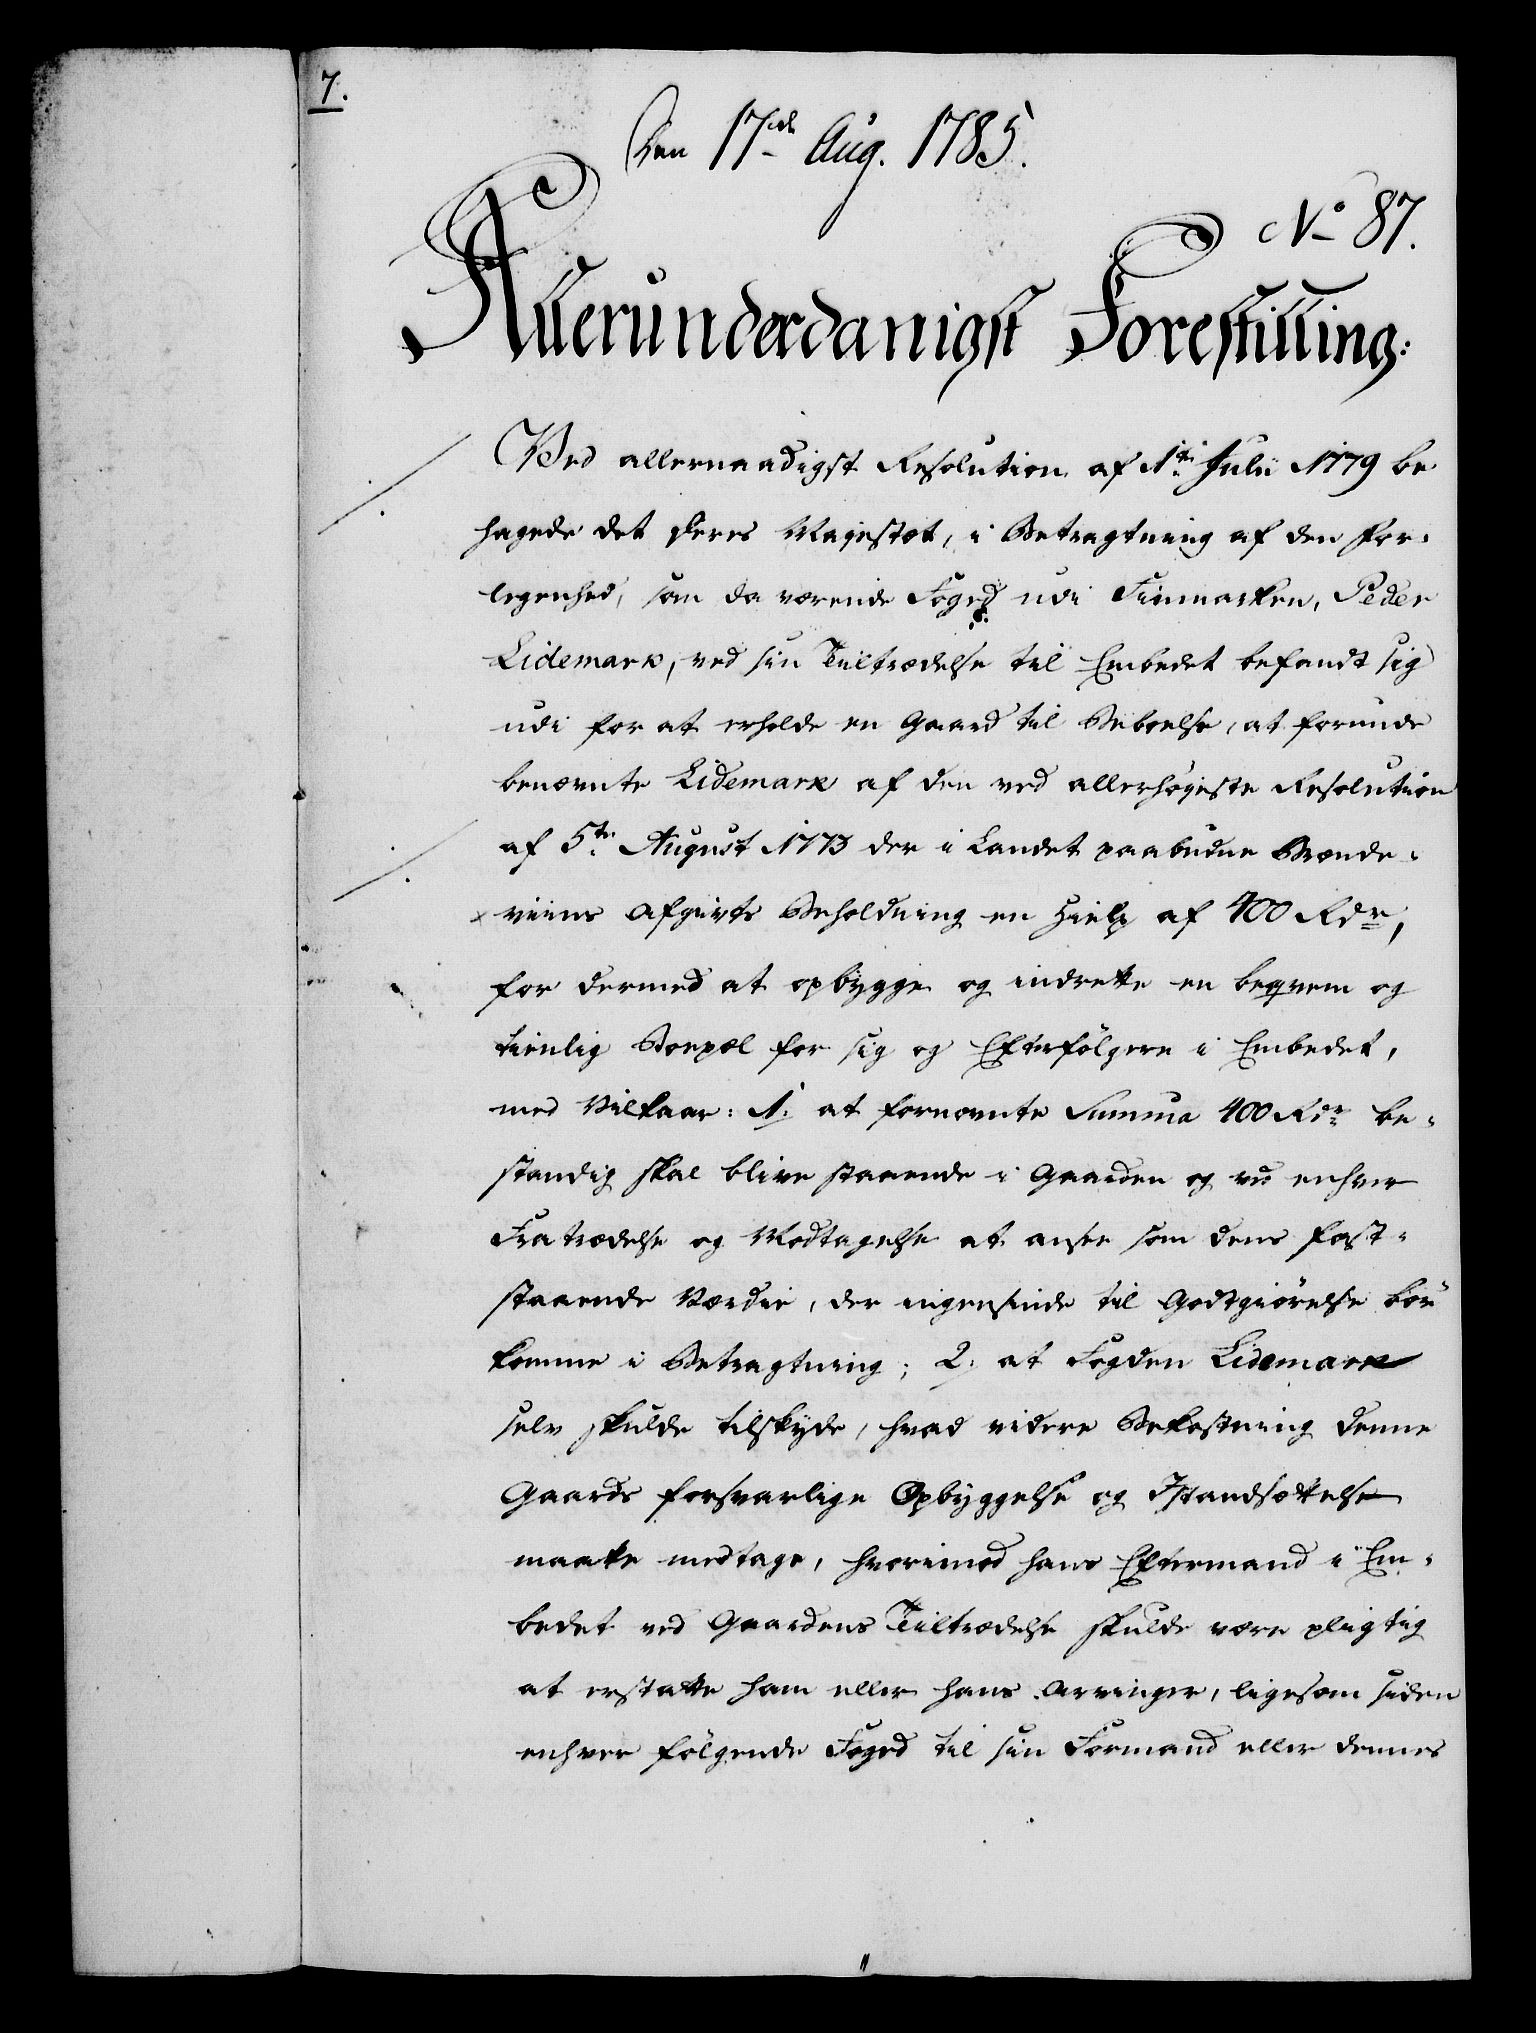 7.
Den 17de Aug. 1785.
No 87.
Allerunderdanigst Forestilling:
Ved allernaadigst Resolution af 1te Julii 1779 be
hagede det Deres Majestæt, i Betragtning af den For-
legenhed, som da værende Foged udi Finmarken, Peder
Lidemark, ved sin Tiltrædelse til Embedet befandt sig
udi for at erholde en Gaard til Beboelse, at forunde
benævnte Lidemark af den ved allerhøyeste Resolution
af 5te August 1773 der i Landet paabudne Brænde-
viins Afgivts Beholdning en Hielp af 400 Rdr,
for dermed at opbygge og indrette en beqvem og
tienlig Boepæl for sig og Efterfølgere i Embedet,
med Vilkaar: 1. at fornævnte Summa 400 Rdr be-
standig skal blive staaende i Gaarden og ved enhver
Fratrædelse og Modtagelse at ansee som dens fast-
staaende Værdie, der ingensinde til Godtgiørelse bør
komme i Betragtning; 2. at Fogden Lidemark
selv skulde tilskyde, hvad videre Bekostning denne
Gaards forsvarlige Opbyggelse og Istandsættelse
maatte medtage, hvorimod hans Eftermand i Em-
bedet ved Gaardens Tiltrædelse skulde være pligtig
at erstatte ham eller hans Arvinger, ligesom siden
enhver følgende Foged til sin Formand eller dennes